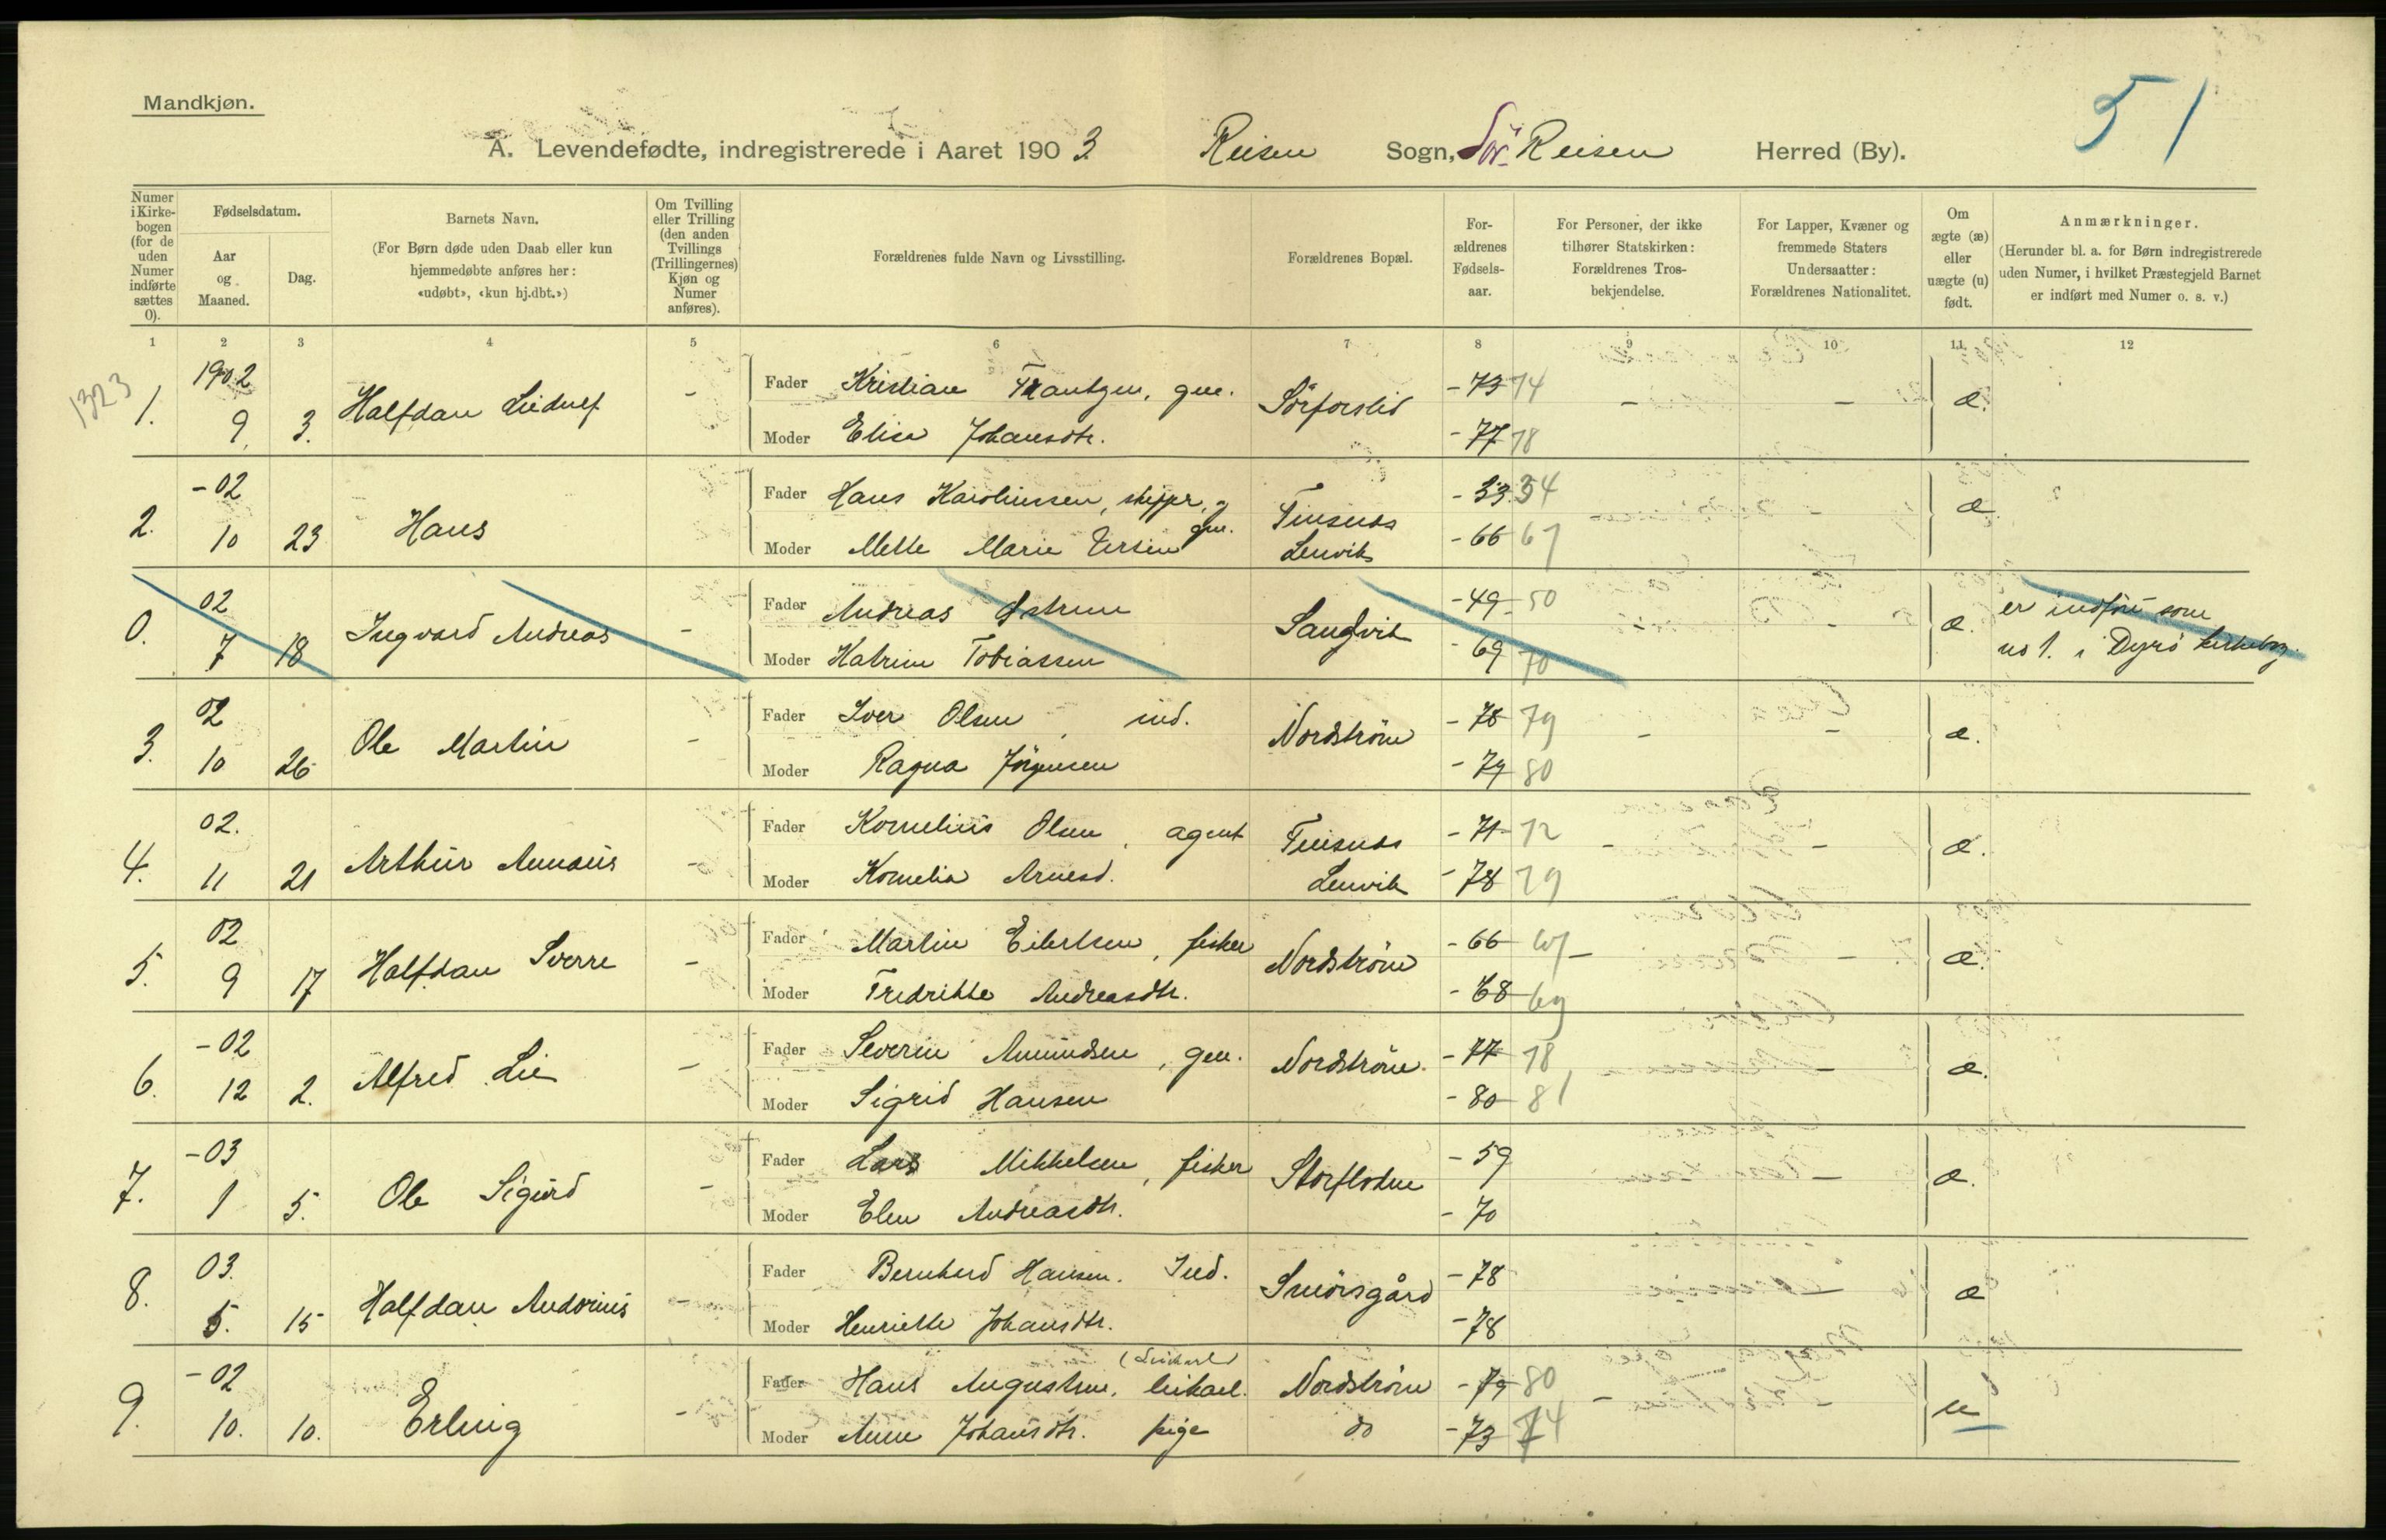 Mandkjøn.
51
A. Levendefødte, indregistrerede i Aaret 1903 Reisen Sogn, Sör-Reisen Herred (By).
Numer i Kirkebogen (for de uden Numer indførte sættes 0).
Fødselsdatum.
Aar og Maaned.
Dag.
Barnets Navn.
(For Børn døde uden Daab eller kun hjemmedøbte anføres her: «udøbt», «kun hj.dbt.»)
Om Tvilling eller Trilling (den anden Tvillings (Trillingernes) Kjøn og Numer anføres).
Forældrenes fulde Navn og Livsstilling.
Forældrenes Bopæl.
Forældrenes Fødselsaar.
For Personer, der ikke tilhører Statskirken: Forældrenes Trosbekjendelse.
For Lapper, Kvæner og fremmede Staters Undersaatter: Forældrenes Nationalitet.
Om ægte (æ) eller uægte (u) født.
Anmærkninger.
(Herunder bl. a. for Børn indregistrerede uden Numer, i hvilket Præstegjeld Barnet er indført med Numer o. s. v.)
1 2 3 4 5 6 7 8 9 10 11 12
1323
1. 1902 9 3. Halfdan Liedulf -
Fader Kristian Frantzen, gm. Sörforslid - 73 74 - - æ.
Moder Elise Johansdtr. - 77 78
2. - 02 10 23 Hans
Fader Hans Karolinssen, skipper, g gm. Finsnes - 33 34 æ
Moder Mette Marie Lenvik - 66 67
0. 02 7 18 Ingvard Andreas -
Fader Andreas Sandvik - 49 50 æ. er indført som
Moder Katrine Tobiassen - 69 70 no 1. i Dyrö kirkebog.
3. 02 10 26 Ole Martin -
Fader Iver Olsen, ind. Nordström - 78 79 - - æ.
Moder Ragna Jörgensen - 79 80
4. 02. 11 21 Arthur Annæus -
Fader Kornelius Olsen, agent Finsnes - 71 72 - - æ.
Moder Kornelia Arnesd. Lenvik - 78 79
5. 02 9 17 Halfdan Sverre -
Fader Martin Eilertsen, fisker Nordström - 66 67 - - æ.
Moder Fredrikke Andreasdtr. - 68 69
6. - 02 12 2. Alfred Lie -
Fader Severin Amundsen, gm. Nordström. - 77 78 - æ.
Moder Sigrid Hansen - 80 81
7. - 03 1 5. Ole Sigurd -
Fader Lars Mikkelsen, fisker Storfloden - 59 - æ.
Moder Elen Andreasdtr. - 70
8. 03. 5. 15 Halfdan Andorius -
Fader Bernhard Hansen. Ind. Smörsgård - 78 - æ
Moder Henriette Johansdtr. - 78
9. - 02 10. 10. Erling -
Fader Hans Augustsen, Nordström - 79 80 - - u
Moder Anne Johansdtr. pige do - 73 74